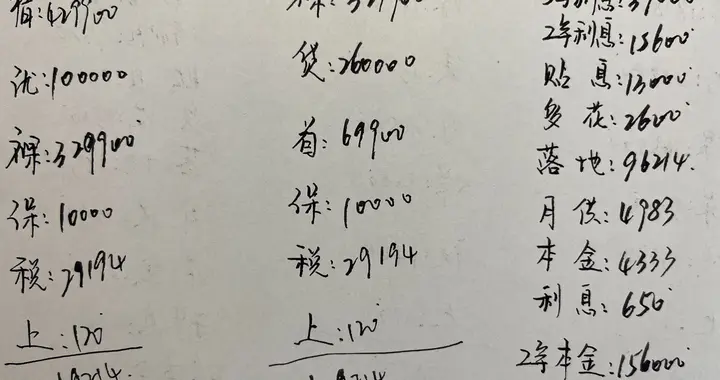 指:429900
优:100000
裸:329900
保:10000
税:29194
上:120
裸:329900
贷:260000
首:69900
保:10000
税:29194
上:120
2年利息:15600
贴息:13000
多花:2600
落地:96214.
月供:4983
本金:4333
利息:650
2年本金:156000